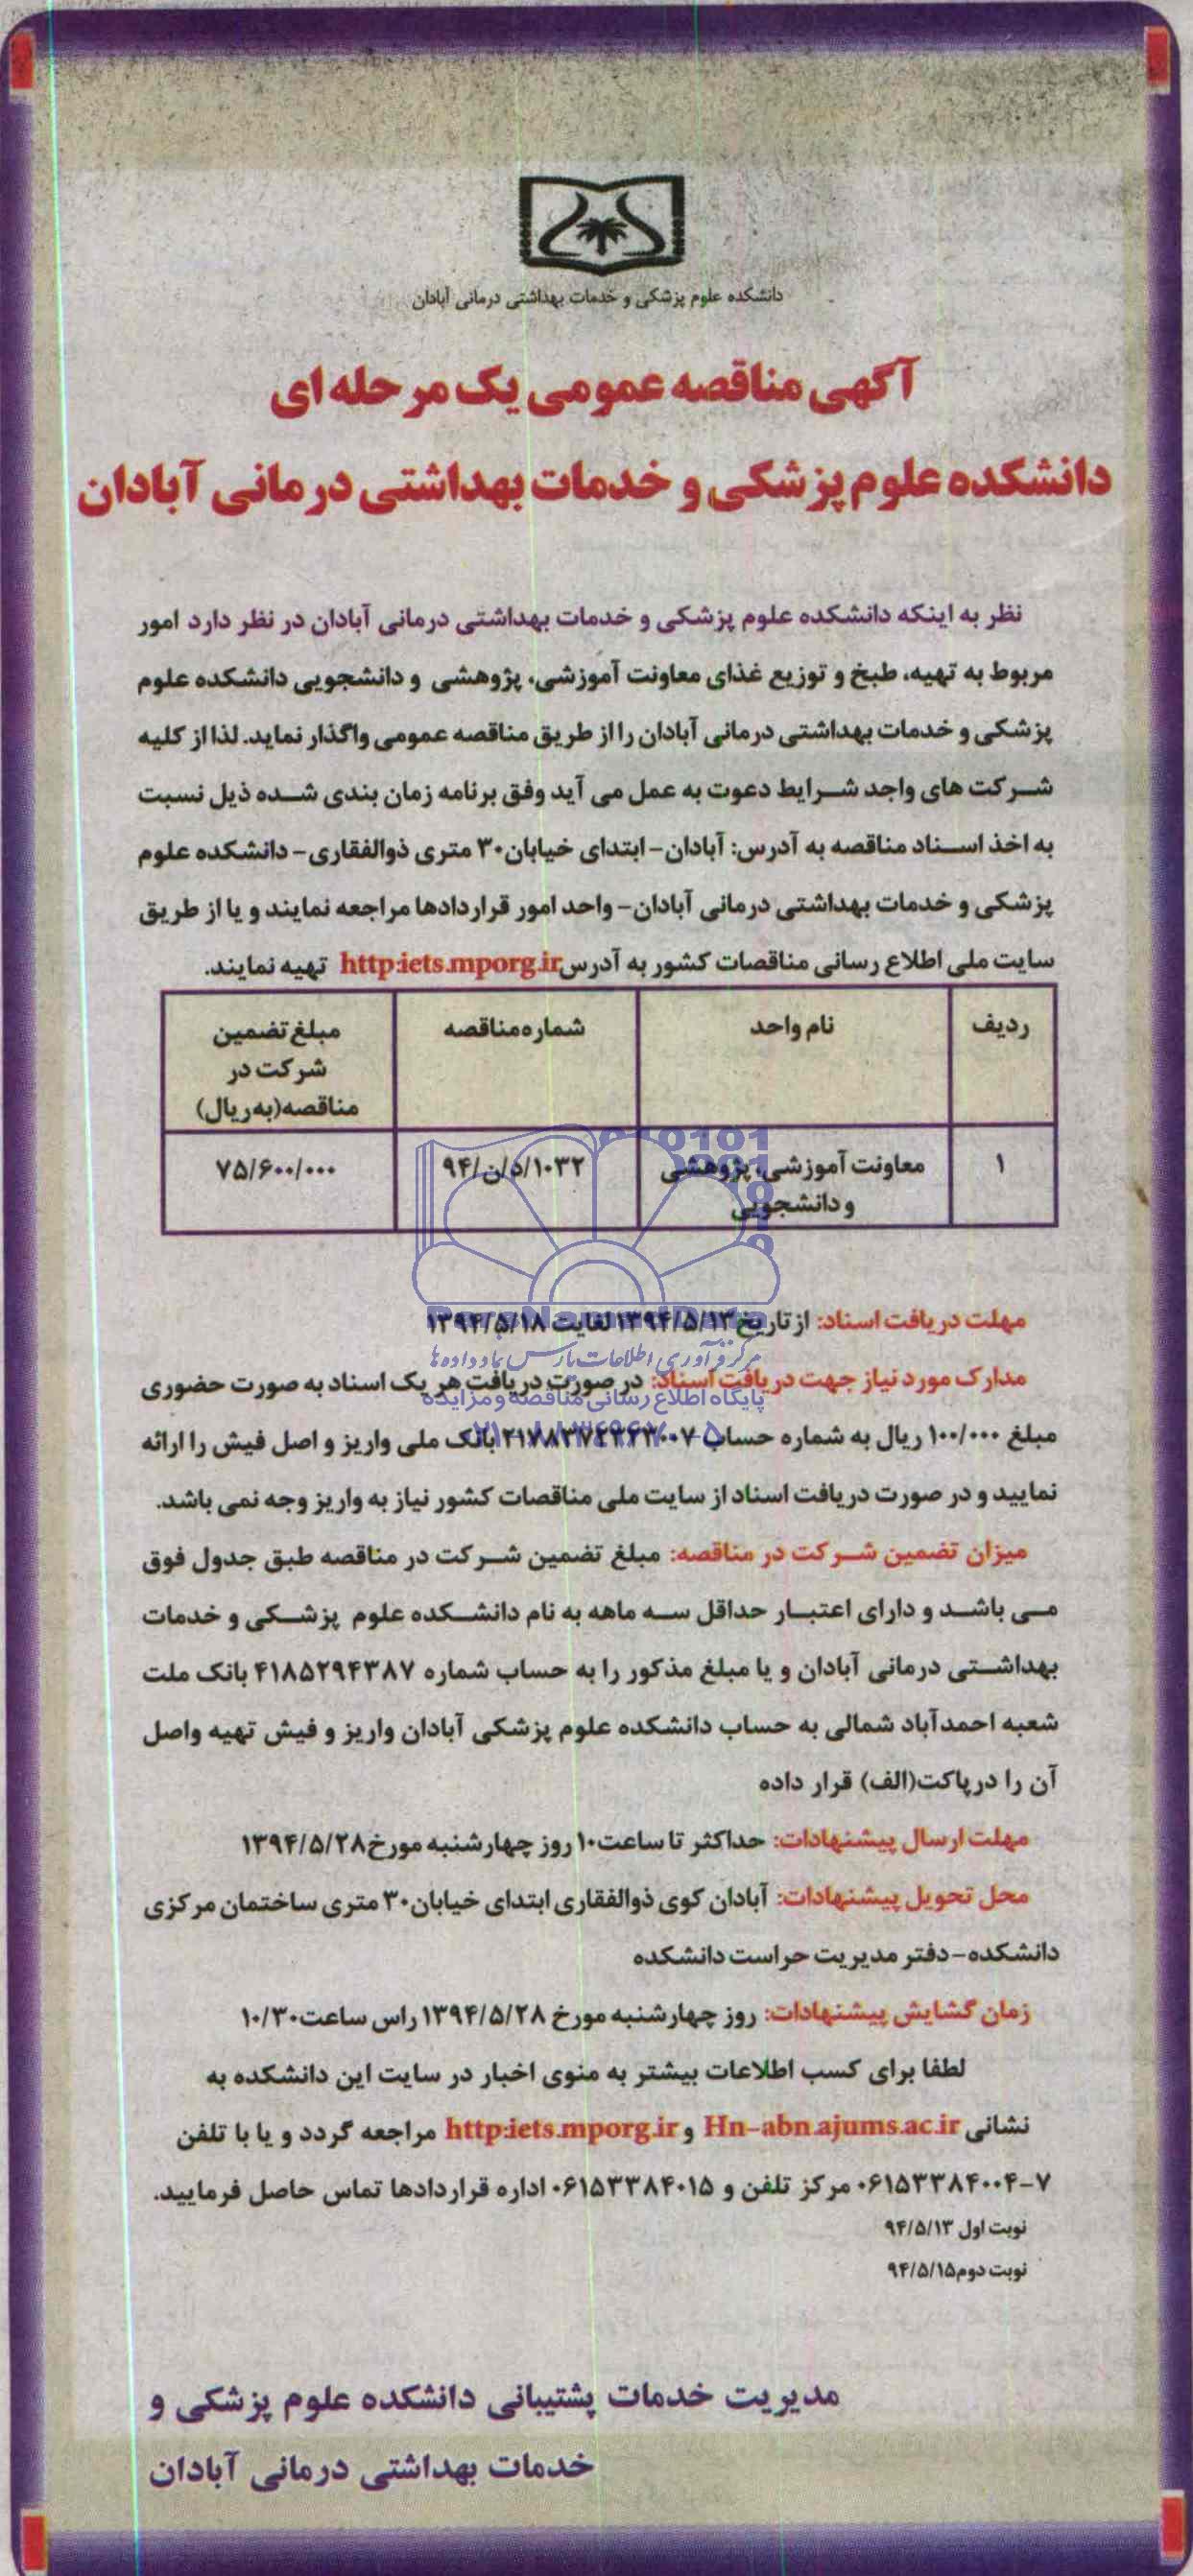 دانشکده علوم پزشکی و خدمات بهداشتی درمانی آبادان
آگهی مناقصه عمومی یک مرحله ای
دانشکده علوم پزشکی و خدمات بهداشتی درمانی آبادان
نظر به اینکه دانشکده علوم پزشکی و خدمات بهداشتی درمانی آبادان در نظر دارد امور
مربوط به تهیه، طبخ و توزیع غذای معاونت آموزشی، پژوهشی و دانشجویی دانشکده علوم
پزشکی و خدمات بهداشتی درمانی آبادان را از طریق مناقصه عمومی واگذار نماید. لذا از کلیه
شرکت های واجد شرایط دعوت به عمل می آید وفق برنامه زمان بندی شده ذیل نسبت
به اخذ اسناد مناقصه به آدرس: آبادان- ابتدای خیابان ۳۰ متری ذوالفقاری- دانشکده علوم
پزشکی و خدمات بهداشتی درمانی آبادان- واحد امور قراردادها مراجعه نمایند و یا از طریق
سایت ملی اطلاع رسانی مناقصات کشور به آدرس http:iets.mporg.ir تهیه نمایند.
ردیف نام واحد شماره مناقصه مبلغ تضمین
شرکت در
مناقصه(به ریال)
۱ معاونت آموزشی، پژوهشی ۱۰۳۲/د/ن/۹۴ ۷۵/۶۰۰/۰۰۰
و دانشجویی
مهلت دریافت اسناد: از تاریخ ۱۳۹۴/۵/۱۳ لغایت ۱۳۹۴/۵/۱۸
مرکز فرآوری اطلاعات پارس نماد داده ها
مدارک مورد نیاز جهت دریافت اسناد: در صورت دریافت هر یک اسناد به صورت حضوری
پایگاه اطلاع رسانی مناقصه و مزایده
مبلغ ۱۰۰/۰۰۰ ریال به شماره حساب بانک ملی واریز و اصل فیش را ارائه
نمایید و در صورت دریافت اسناد از سایت ملی مناقصات کشور نیاز به واریز وجه نمی باشد.
میزان تضمین شرکت در مناقصه: مبلغ تضمین شرکت در مناقصه طبق جدول فوق
می باشد و دارای اعتبار حداقل سه ماهه به نام دانشکده علوم پزشکی و خدمات
بهداشتی درمانی آبادان و یا مبلغ مذکور را به حساب شماره ۴۱۸۵۲۹۴۳۸۷ بانک ملت
شعبه احمدآباد شمالی به حساب دانشکده علوم پزشکی آبادان واریز و فیش تهیه واصل
آن را در پاکت(الف) قرار داده
مهلت ارسال پیشنهادات: حداکثر تا ساعت ۱۰ روز چهارشنبه مورخ ۱۳۹۴/۵/۲۸
محل تحویل پیشنهادات: آبادان کوی ذوالفقاری ابتدای خیابان ۳۰ متری ساختمان مرکزی
دانشکده-دفتر مدیریت حراست دانشکده
زمان گشایش پیشنهادات: روز چهارشنبه مورخ ۱۳۹۴/۵/۲۸ راس ساعت ۱۰/۳۰
لطفا برای کسب اطلاعات بیشتر به منوی اخبار در سایت این دانشکده به
نشانی Hn-abn.ajums.ac.ir و http:iets.mporg.ir مراجعه گردد و یا با تلفن
۰۶۱۵۳۳۸۴۰۰۴-۷ مرکز تلفن و ۰۶۱۵۳۳۸۴۰۱۵ اداره قراردادها تماس حاصل فرمایید.
نوبت اول ۹۴/۵/۱۳
نوبت دوم ۹۴/۵/۱۵
مدیریت خدمات پشتیبانی دانشکده علوم پزشکی و
خدمات بهداشتی درمانی آبادان